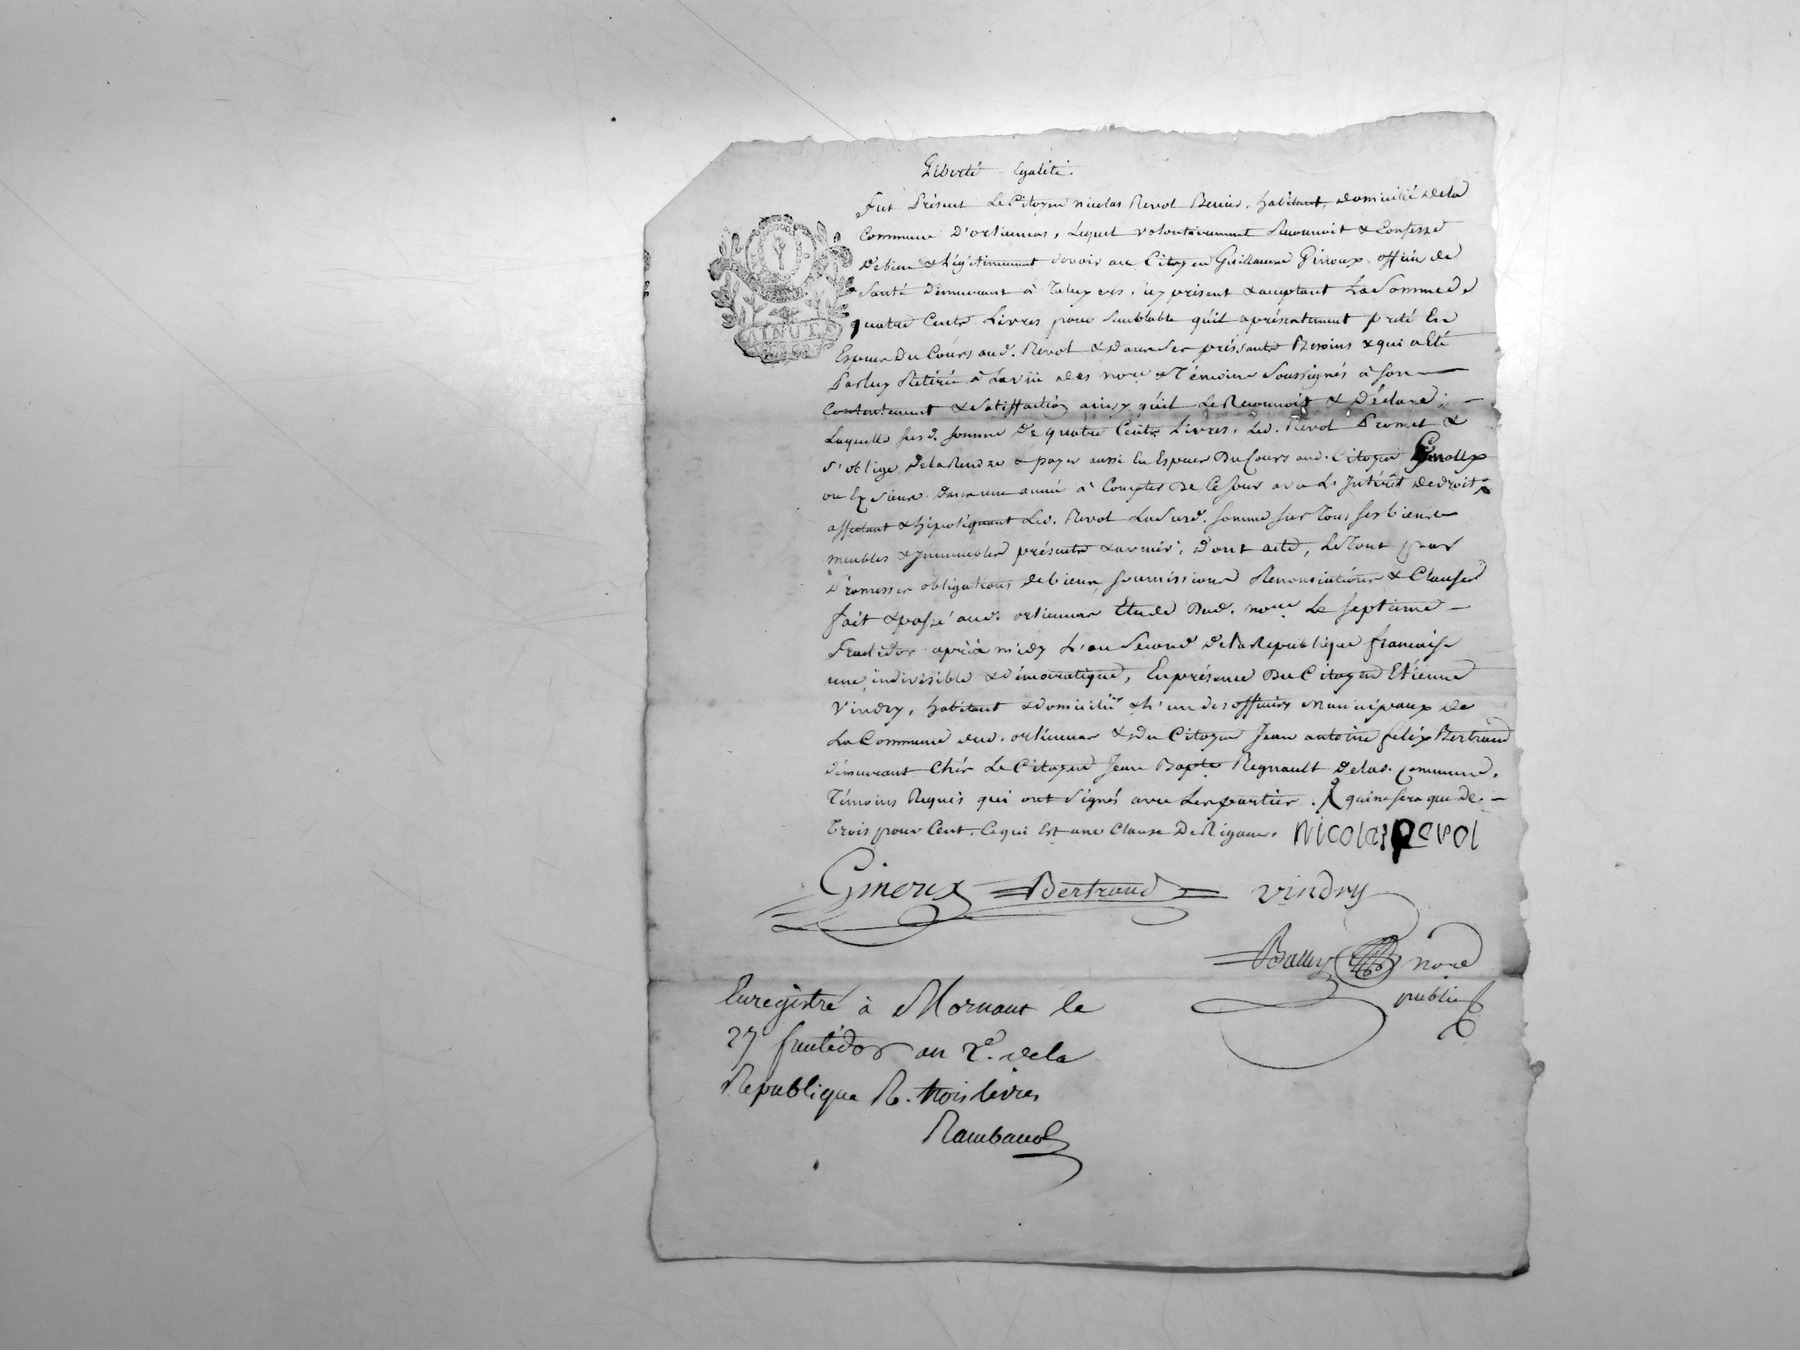 Liberté - Egalité.
Fut Présent Le Citoyen nicolas Revol Benier, habitant, domicilié dela
Commune D'orlienas, Lequel volontairement Reconnoit & Confesse
Debien & légitimement devoir au Citoyen Guillaume Ginoux officier de
Santé Demeurant à Taluyers, icy présent & acceptant La Somme de
quatre Cents Livres pour Semblable qu'il a présentement preté En
Espeur Du Cours aud. Revol & dans Ses préssants Besoins & qui a Eté
Par luy Retirée à La vüe des nore & Témoins Soussignés à son
Contentement & Satisffaction ainsy qu'il Le Reconnoit & Déclare;
Laquelle susd. somme De quatre Cents Livres, Led. Revol Promet &
s'oblige De la Rendre & payer aussi En Espeur Du Cours aud. Citoyen Ginoux
ou Ex Sieurs dans une année à Compter De Ce Jour avec L'Intérêt de droit
affectant & hipotéquant Led. Revol La Susd. somme sur Tous ses biens
meubles & Immeubles présents & avenir; Dont acte, Le Tout par
Promesses obligations de biens, soumissions Renonciations & Clauses
fait & passé aud. orlienas Etude Dud. nore Le septieme
Fructidor après midy L'an Second De la Republique francaise
une, indivisible & démocratique, En présence Du Citoyen Etienne
Vindry, habitant & domicilié & L'un des officiers Municipaux de
La Commune dud. orlienas & du Citoyen Jean antoine felix Bertrand
demeurant Chés Le Citoyen Jean Bapte Regnault De lad. Commune,
Témoins Requis qui ont Signés avec Les parties. qui ne sera que De
Trois pour Cent, Ce qui Est une Clause De Rigueur. Nicolas Revol
Ginoux Bertrand vindry
nore
public
Enregistré à Mornant le
27 fructidor an 2e. dela
Republique R. trois livres
Rambaud
MINUTE